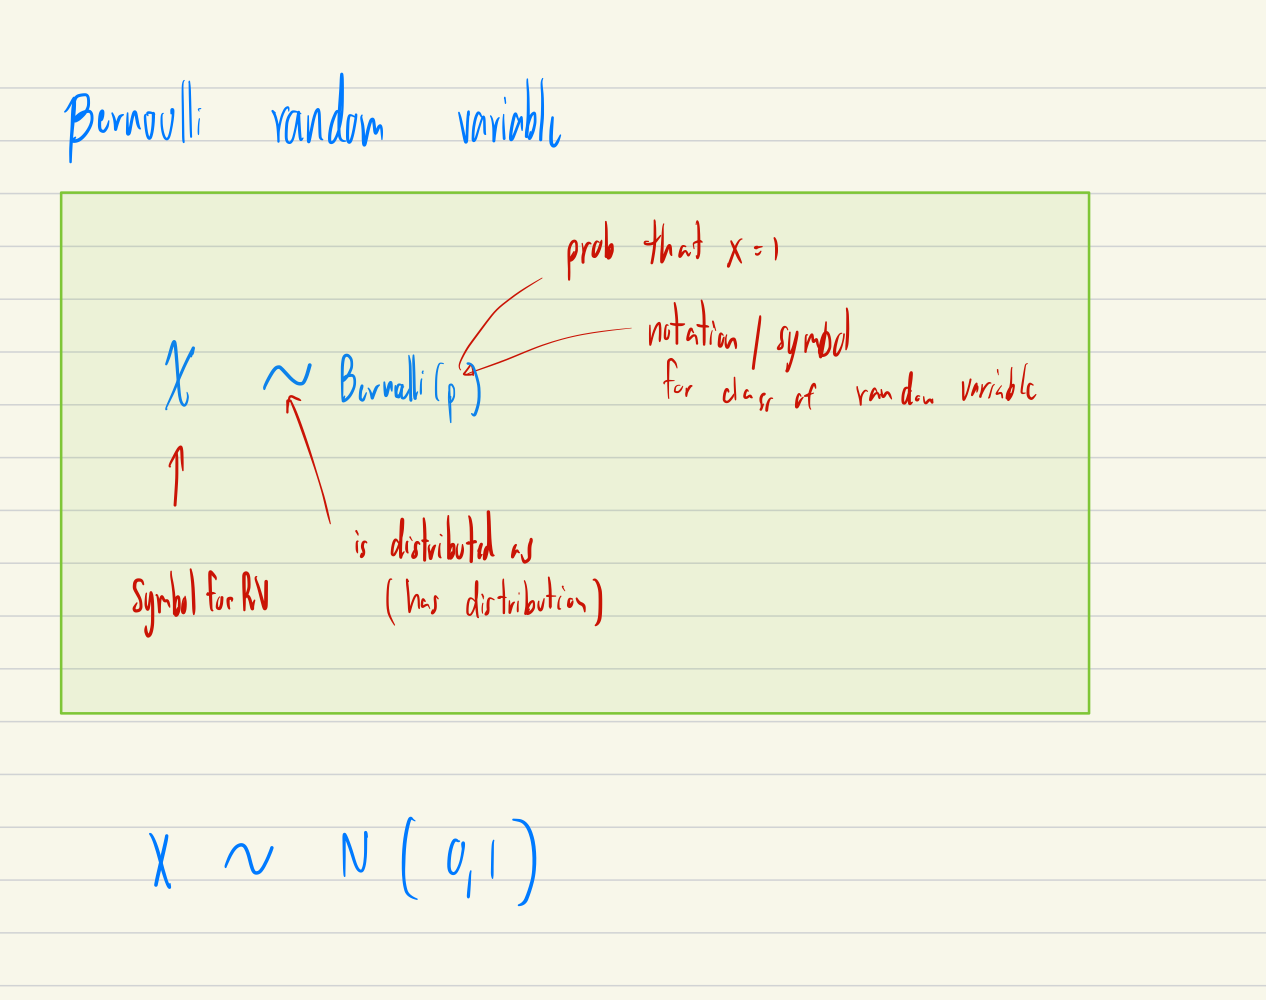 Bernoulli random variable
prob that X = 1
notation / symbol
for class of random variable
X ~ Bernoulli (p)
is distributed as
(has distribution)
Symbol for RV
X ~ N (0,1)